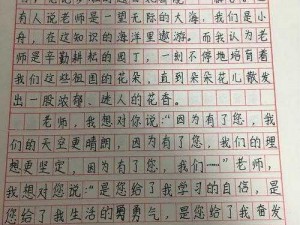 有人说老师是一望无际的大海,我们是小
舟,在这知识的海洋里遨游。而我认为老
师是辛勤耕耘的园丁,一刻不停地培育着
我们这些祖国的花朵,直到朵朵花儿散发
出一股浓郁、迷人的花香。
老师,我想对你说:“因为有了您,我
们的天空更晴朗,因为有了您,我们的理
想更坚定,因为有了您,我们……”老师,
我想对您说:“是您给了我学习的自信,是
您给了我生活的勇气,是您给了我奋发